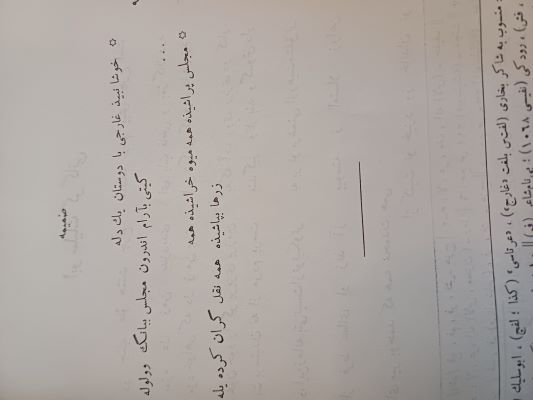 ضمیمه
☼ خوشا نبید غارجی با دوستان یك دله
گیتی بآرام اندرون مجلس ببانگ وولوله
...
☼ مجلس پراشیده همه میوه خراشیده همه
زرها بپاشیده همه نقل گران کرده یله
: منسوب به شاکر بخاری (لفت‌س بلغت «غارج») ، «عرتامی» (کذا ؛ لفج) ، ابوسلیك
، فش) ، رودکی (نفیسی ۱۰۶۸) ؛ بی‌نام شاعر